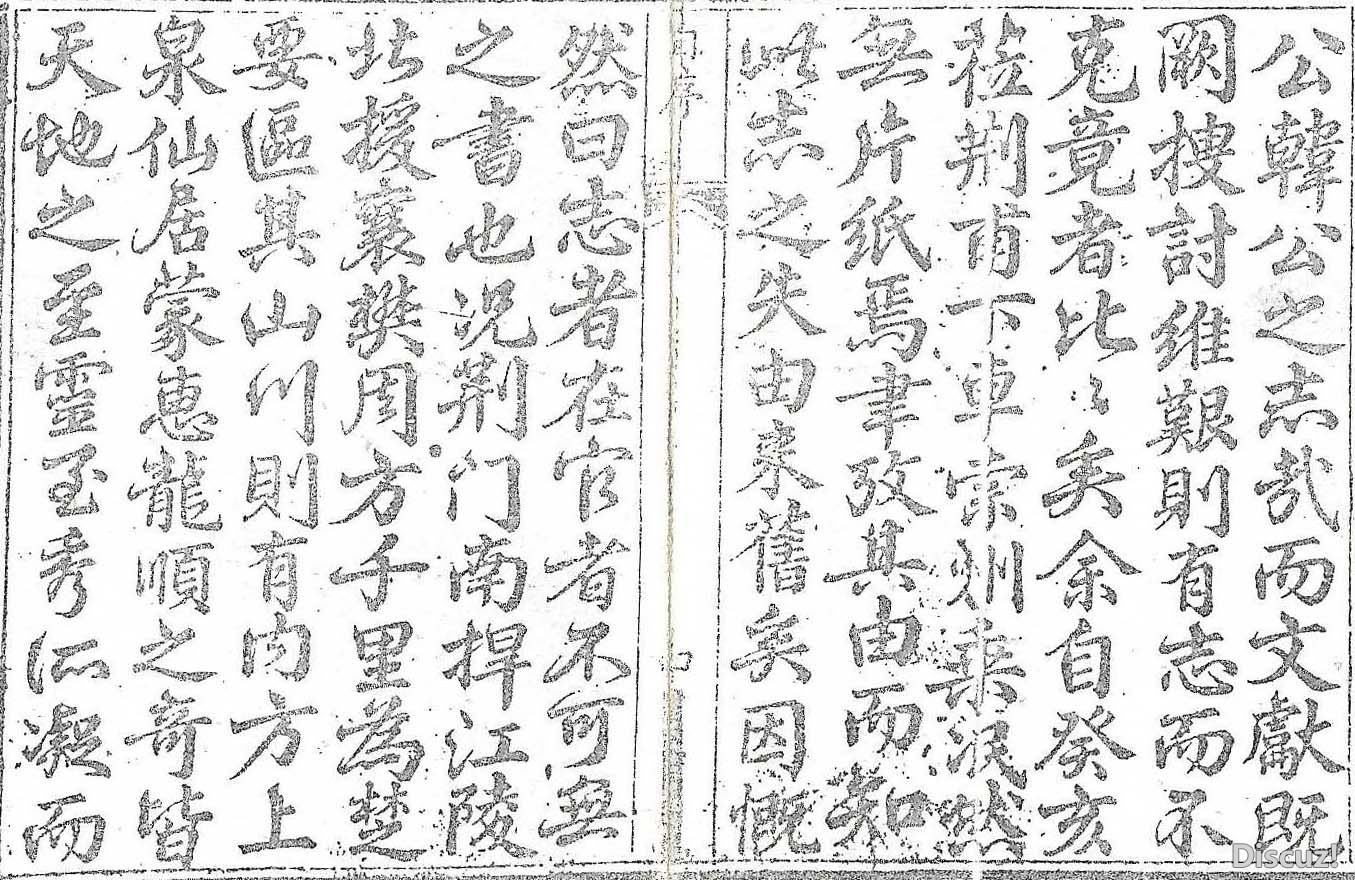 公韓公之志哉而文獻既
闕搜討維艱則有志而不
克竟者比〻矣余自癸亥
蒞荆甫下車索州乗泯然
無片紙焉聿攷其由而知
此志之失由来舊矣因慨
然曰志者在官者不可無
之書也况荆门南捍江陵
北援襄樊周方千里為楚
要區其山川則有内方上
泉仙居蒙惠龍順之奇皆
天地之至靈至秀所凝而
Discuz!